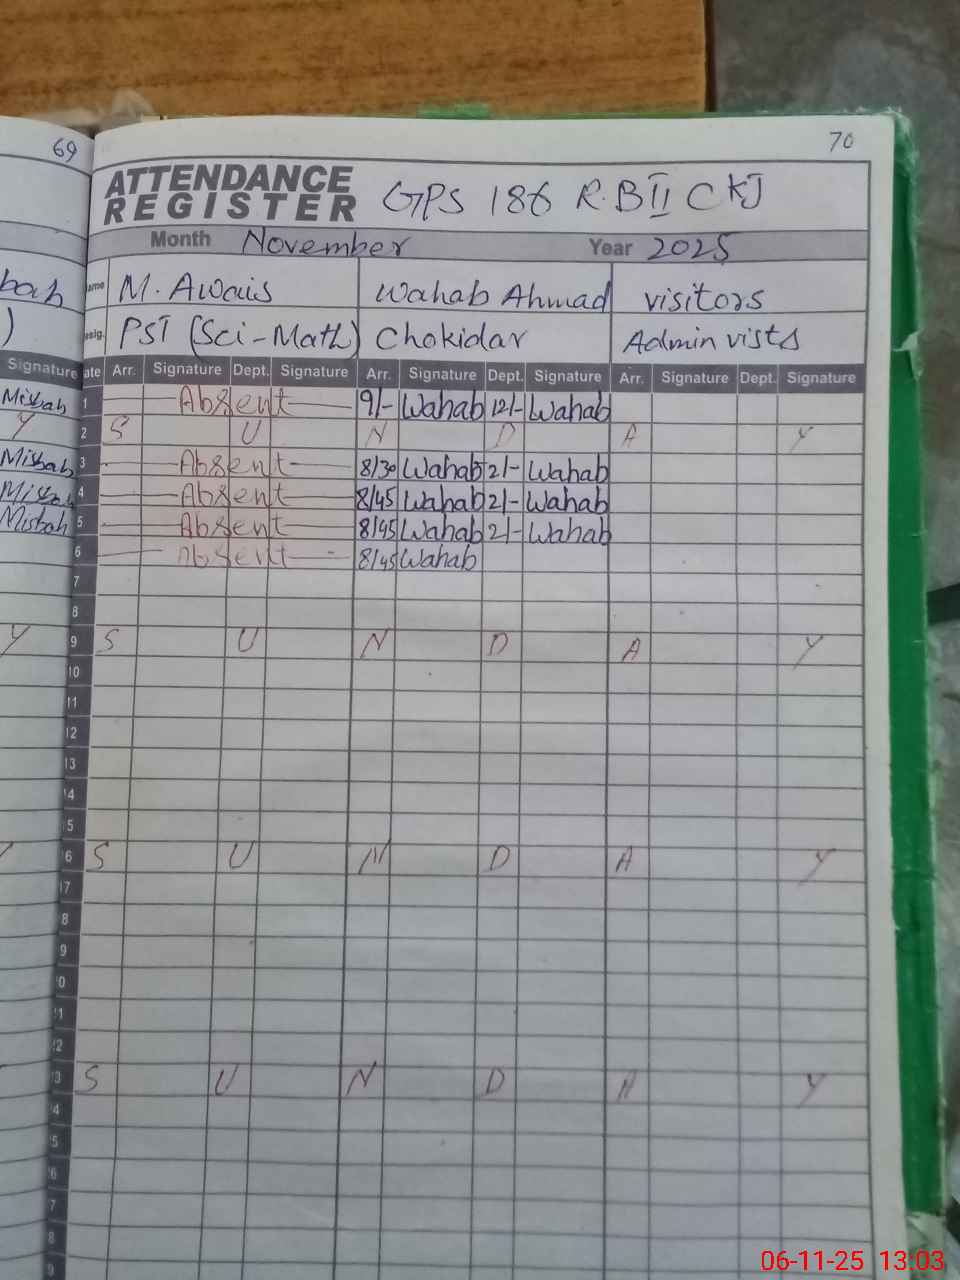 69
70
ATTENDANCE
REGISTER
GPS 186 R.B II CKJ
Month November Year 2025
bah
ame M. Awais Wahab Ahmad visitors
)
esig. PST (Sci-Math) Chokidar Admin vists
Signature ate Arr. Signature Dept. Signature Arr. Signature Dept. Signature Arr. Signature Dept. Signature
Misbah 1 Absent 9/- Wahab 12/- Wahab
Y 2 S U N D A Y
Misbah 3 Absent 8/30 Wahab 2/- Wahab
Misbah 4 Absent 8/45 Wahab 2/- Wahab
Misbah 5 Absent 8/45 Wahab 2/- Wahab
6 Absent 8/45 Wahab
7
8
Y 9 S U N D A Y
10
11
12
13
14
15
6 S U N D A Y
17
8
9
0
1
2
3 S U N D A Y
4
5
6
7
8
9
06-11-25 13:03